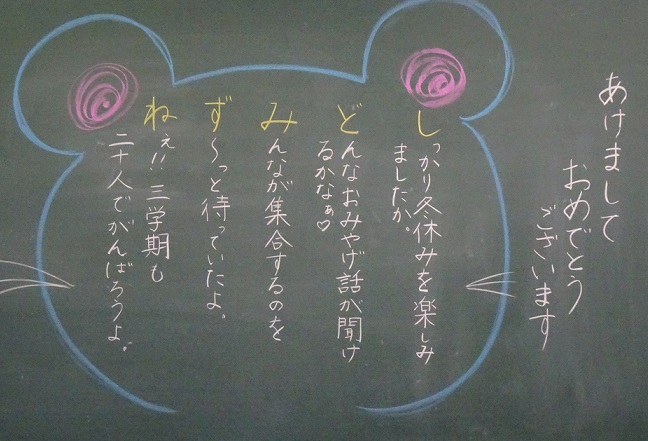 あけまして
おめでとう
ございます
しっかり冬休みを楽しみ
ましたか。
どんなおみやげ話が聞け
るかなぁ♡
みんなが集合するのを
ず〜っと待っていたよ。
ねぇ!!三学期も
二十人でがんばろうよ。